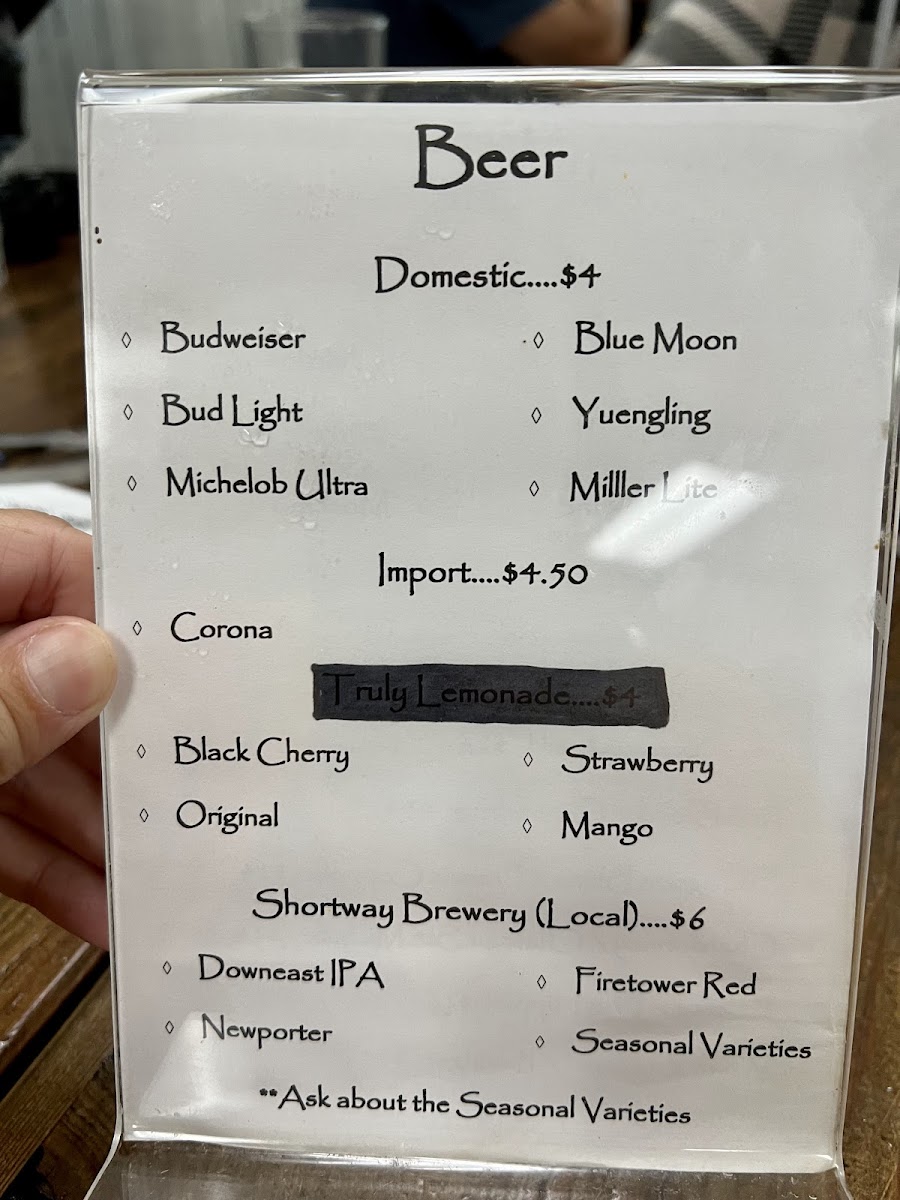 Beer
Domestic....$4
◊ Budweiser ◊ Blue Moon
◊ Bud Light ◊ Yuengling
◊ Michelob Ultra ◊ Milller Lite
Import....$4.50
◊ Corona
Truly Lemonade....$4
◊ Black Cherry ◊ Strawberry
◊ Original ◊ Mango
Shortway Brewery (Local)....$6
◊ Downeast IPA ◊ Firetower Red
◊ Newporter ◊ Seasonal Varieties
**Ask about the Seasonal Varieties